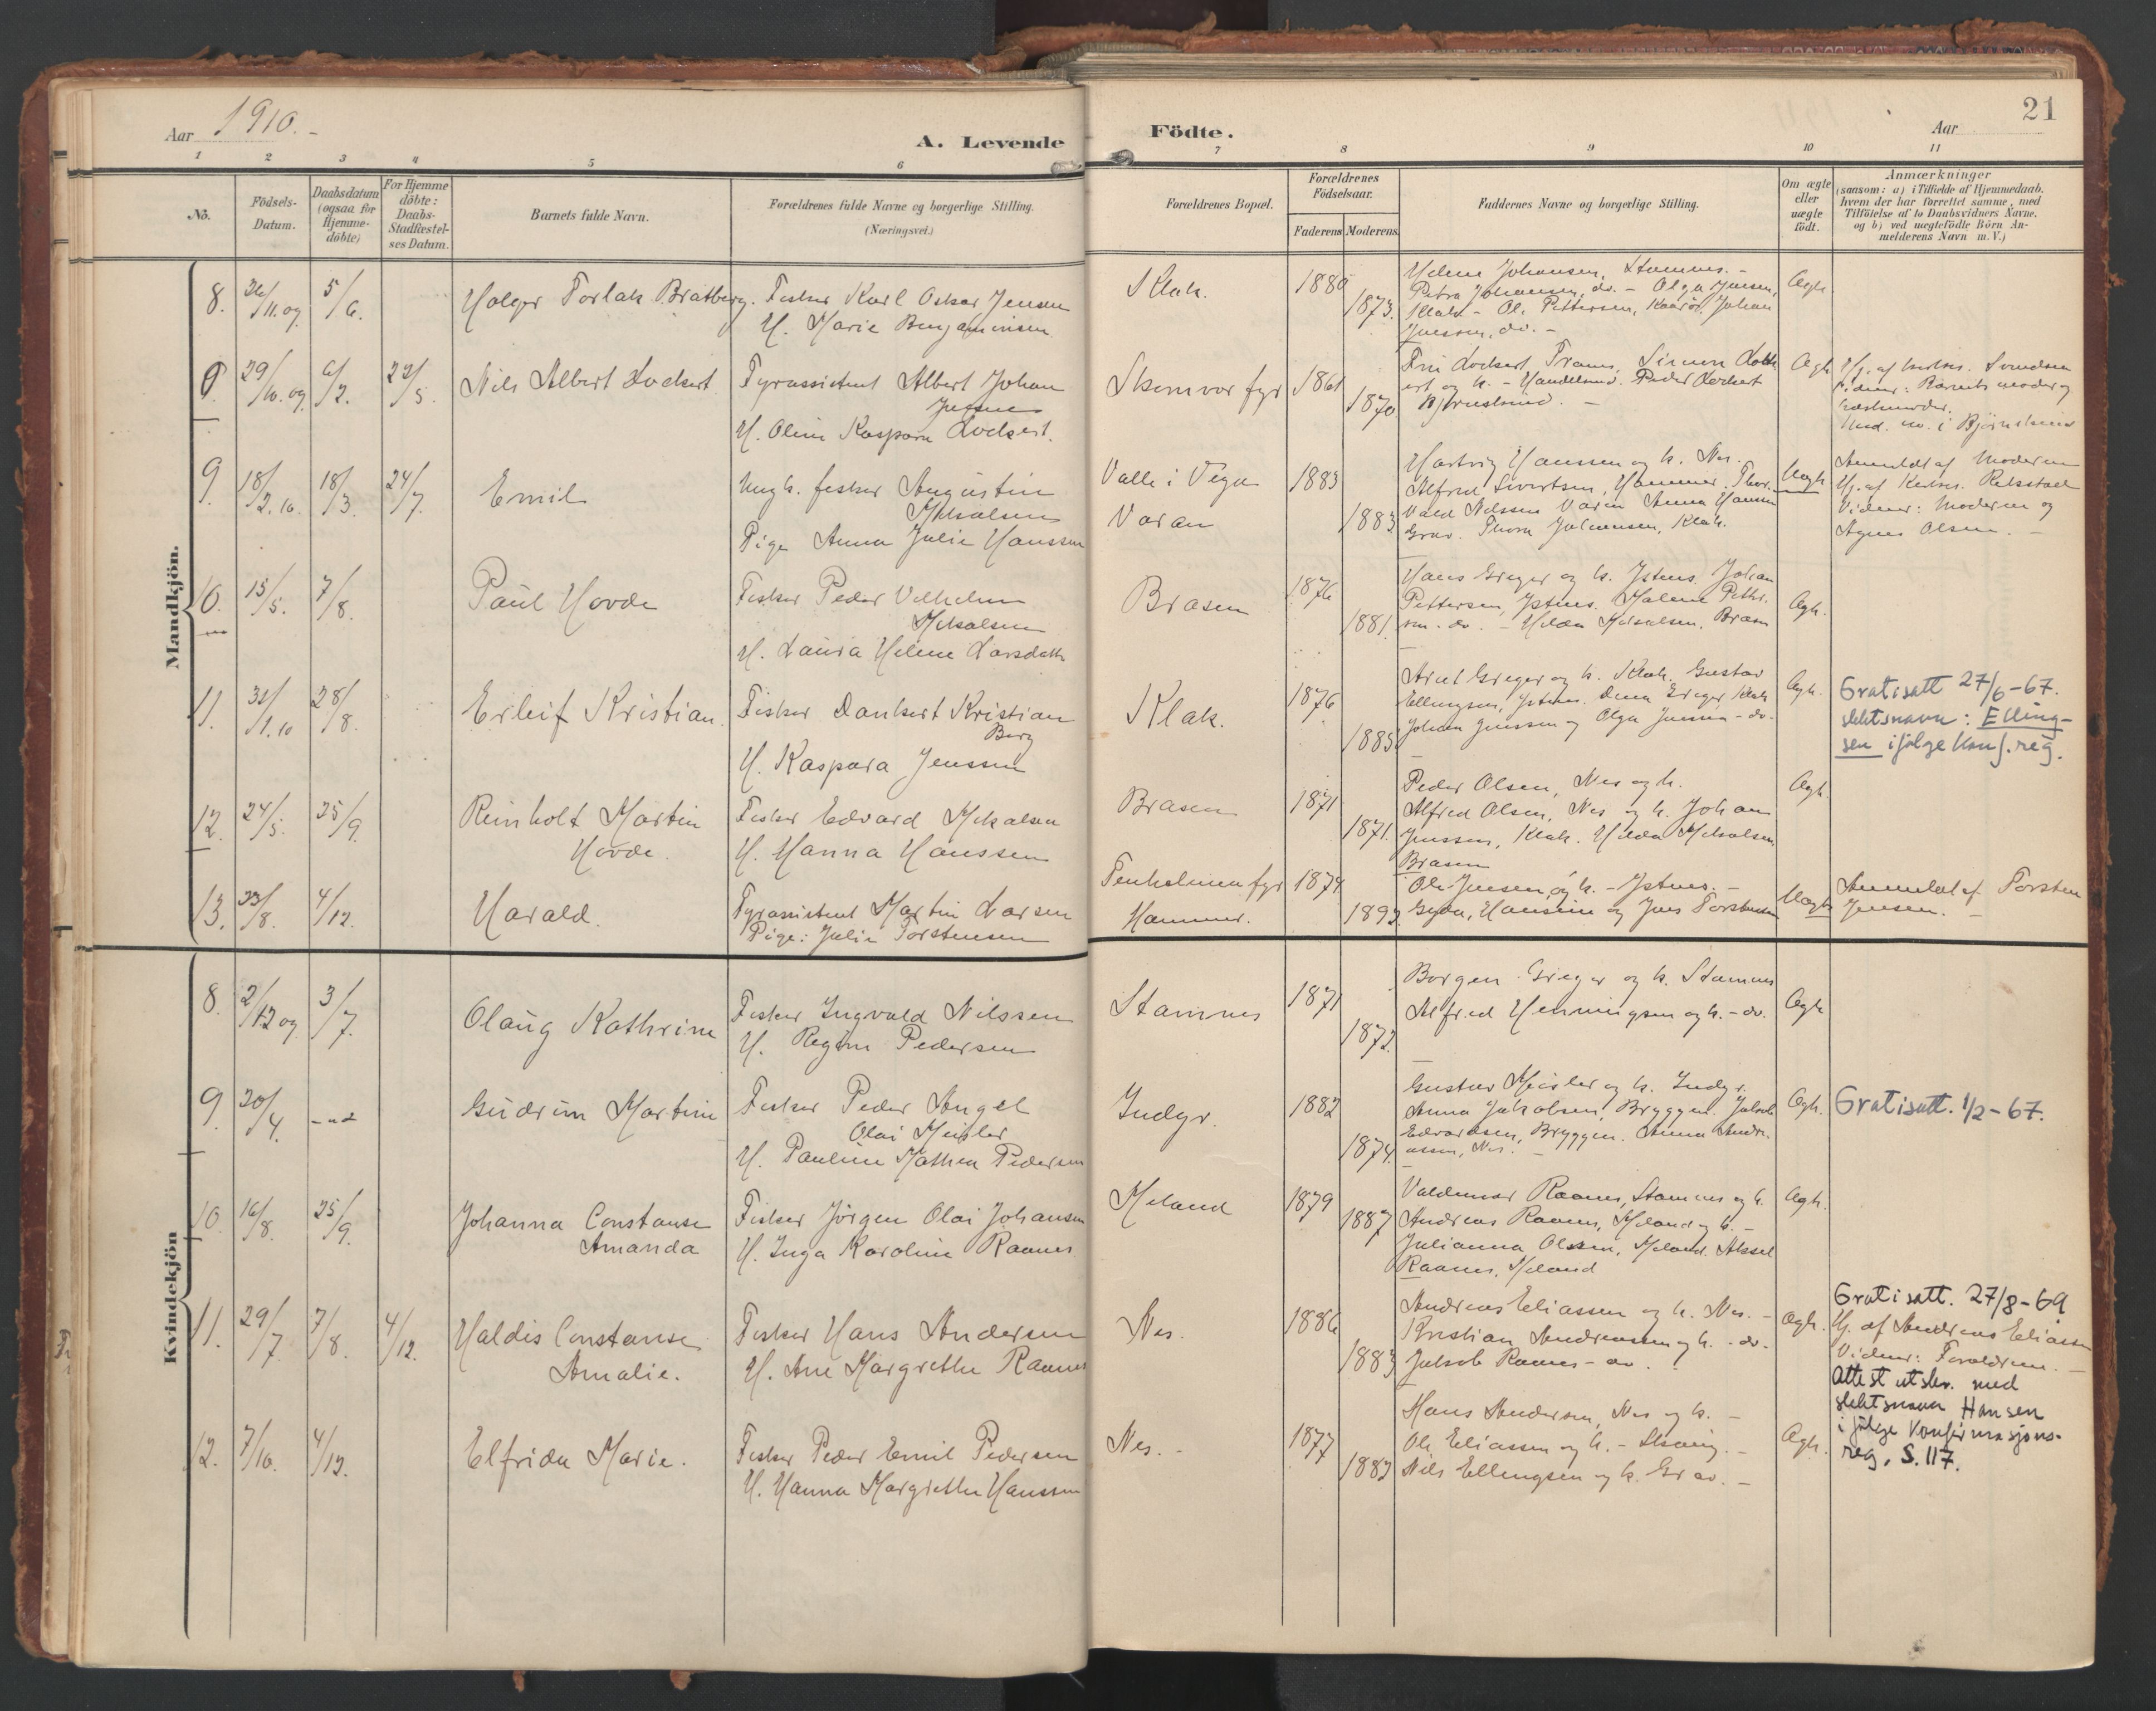 Aar 1910.-
A. Levende
Födte.
Aar
21
1 2 3 4 5 6 7 8 9 10 11
No.
Födsels-Datum.
Daabsdatum (ogsaa for Hjemme-döbte)
For Hjemme döbte: Daabs-Stadfæstel-ses Datum.
Barnets fulde Navn.
Forældrenes fulde Navne og borgerlige Stilling. (Næringsvei.)
Forældrenes Bopæl.
Forældrenes Födselsaar.
Faderens Moderens
Faddernes Navne og borgerlige Stilling.
Om ægte eller uægte födt.
Anmærkninger
(saasom: a) i Tilfælde af Hjemmedaab.
hvem der har forrettet samme, med
Tilföielse af to Daabsvidners Navne.
og b) ved uægtefödte Börn An-
melderens Navn m. V.)
Mandkjön.
8. 26/11.09 5/6. Holger Torlak Bratberg. Fisker Karl Oskar Jensen
H. Marie Benjaminsen
Klak. 1880 1873.
Helene Johansen, Stamnes.-
Petra Johansen, do. - Olga Jensen,
Klak - Ol. Pettersen, Johan
Jenssen, do. -
Ægte
9. 29/10.09 6/2. 22/5. Nils Albert Lockert Fyrassistent Albert Johan
Jensen
H. Oline Kaspara Lockert.
Skomvær fyr 1861 1870
Lockert Simon Lock
ert og h. - Peder Lockert
Ægte
Vidner: Barnets moder og
9. 18/2.10 18/3. 24/7. Emil Ungk. fisker Augustin
Mikalsen
Pige Anna Julie Hanssen
Valle i Vega
Varan 1883 1883
Hartvig Hanssen og h. Nes.
Alfred Sivertsen, Hammer. Thor-
vald Nilssen Varen Anna Hanssen
Grav. Thora Johansen, Klak.
Uægte
Anmeldt af Moderen
Hj. af Kirkes. Rekstad
Vidner: Moderen og
Agnes Olsen. -
10. 15/5. 7/8. Paul Hovde Fisker Peder Vilhelm
Mikalsen
H. Laura Helene Larsdatter
Brasen 1876 1881.
Hans Greger og h. Ystnes. Johan
Pettersen, Ystnes. Malene Petter-
sen - do. - Hilda Mikalsen, Brasen
Ægte.
11. 31/1.10 28/8. Erleif Kristian. Fisker Dankert Kristian
Berg
H. Kaspara Jenssen
Klak. 1876 1885
Greger og h. Klak. Gustav
Ellingsen, Ystnes. Greger, Klak
Johan Jenssen og Olga Jenssen - do.
Ægte.
Gratisatt 27/6-67.
slektsnavn: Elling-
sen ifølge konf.reg.
12. 24/5. 25/9. Reinholt Martin
Hovde.
Fisker Edvard Mikalsen
H. Hanna Hanssen
Brasen 1871 1871.
Peder Olsen, Nes og h.
Alfred Olsen, Nes og h. Johan
Jenssen, Klak. Hilda Mikalsen
Brasen
Ægte.
13. 23/8. 4/12. Harald. Fyrassistent Martin Larsen
Pige: Julie Torstensen
Tenholmen fyr
Hammer. 1874 1892.
Ole Jensen og h. - Ystnes. -
Gyda, Hansine og Jens Torstensen
Uægte
Anmeldt af Torsten
Jensen. -
Kvindekjön
8. 2/12 09 3/7. Olaug Kathrine Fisker Ingvald Nilssen
H. Regine Pedersen
Stamnes 1871 1872.
Borgen Greger og h. Stamnes
Alfred Henningsen og h. - do.
Ægte
9. 20/4. Gudrun Martine Fisker Peder Angel
Olai Meisler
H. Pauline Mathea Pedersen
Indyr. 1882 1874.
Gustav Meisler og h. Indyr.
Anna Jakobsen, Bryggen. Jakob
Edvardsen, Bryggen. Anna Andre-
assen, Nes. -
Ægte.
Gratisatt. 1/2-67.
10. 16/8. 25/9. Johanna Constanse
Amanda
Fisker Jörgen Olai Johansen
H. Inga Karoline Raanes.
Meland 1879 1887
Valdemar Raanes, Stamnes og h.
Andreas Raanes, Meland og h. -
Julianna Olsen, Meland. Aksel
Raanes, Meland
Ægte.
11. 29/7. 7/8. 4/12. Haldis Constanse
Amalie.
Fisker Hans Andersen
H. Ane Margrethe Raanes
Nes. 1886 1883
Andreas Eliassen og h. Nes. -
Kristian Andreassen og h. - do.
Jakob Raanes - do.
Ægte.
Gratisatt. 27/8-69
Hj. af Andreas Eliassen
Vidner: Forældrene. -
Attest utskr. med
slektsnavn Hansen
i følge konfirmasjons-
reg. S. 117.
12. 7/10. 4/12. Elfrida Marie. Fisker Peder Emil Pedersen
H. Hanna Margrethe Hanssen
Nes. - 1877 1883
Hans Andersen, Nes og h. -
Ole Eliassen og h. - -
Nils Ellingsen og h. Grav. -
Ægte.